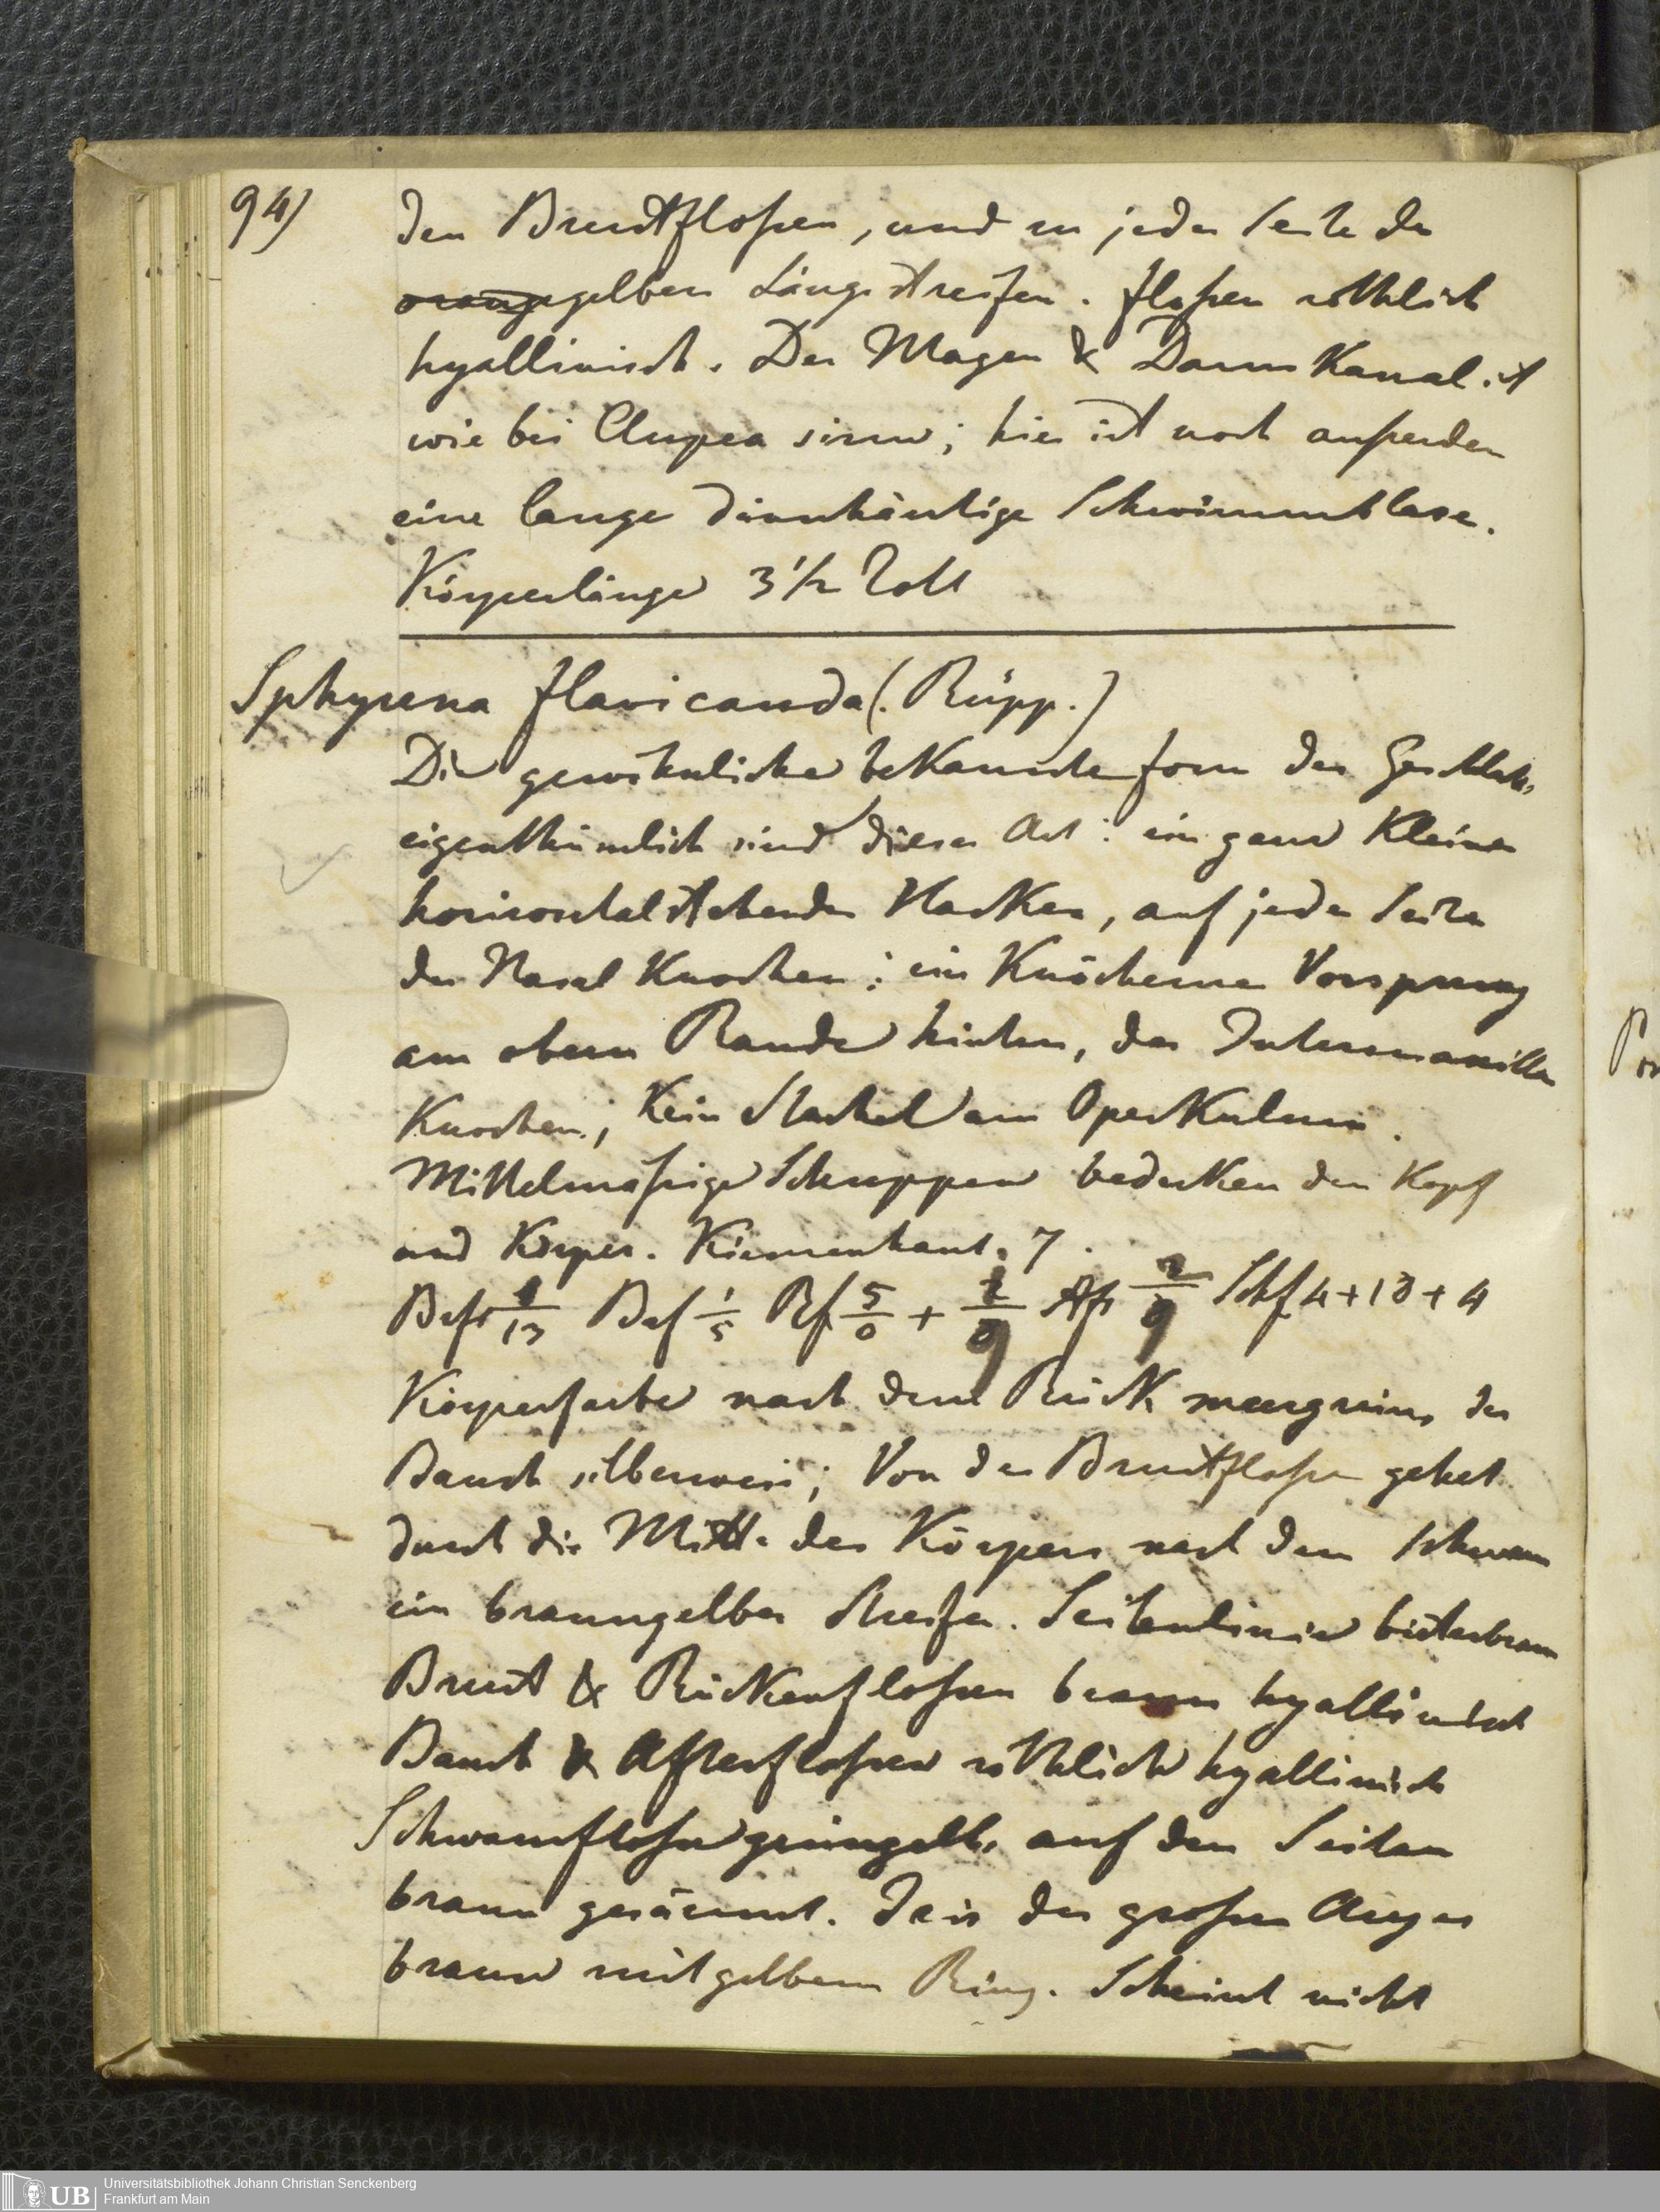 94)
den Brustflossen, und in jeder Seite der
orangegelben Längsstreifen. flossen röthlich
hyallinisch. Der Magen & Darm Kanal ist
wie bei Clupea sirm; hier ist noch ausserdem
eine lange dünnhäutige Schwimmblase.
Körperlänge 3 1/2 Zoll
Sphyrena flavicauda (. Rüpp.)
Die gewöhnliche bekannte form des Geschlechts,
eigenthümlich sind dieser Art: ein ganz Kleiner
horizontal stehender Hacken, auf jeder Seite
der Nasal Knochen; ein Knöcherner Vorsprung
am obern Rande hinten, der Intermaxillar
Knochen; Kein Stachel am OperKulum.
Mittelmässige Schuppen bedecken den Kopf
und Körper. Kiemenhaut. 7.
Brfl 1/13 Baf 1/5 Rf 5/0 + 2/9 Afs 2/9 Schf 4+13+4
Körperfarbe nach dem Rück meergrün, der
Bauch silberweis; Von der Brustflosse gehet
durch die Mitte des Körpers nach dem Schwanz
ein braungelber Streifen. Seitenlinie bisterbraun
Brust & Rückenflossen braun hyallinisch
Bauch & Afterflossen röthlich hyallinisch
Schwanzflosse grüngelb, auf den Seiten
braun gesäumt. Iris des grossen Auges
braun mit gelbem Ring. Scheint nicht
UB
Universitätsbibliothek Johann Christian Senckenberg
Frankfurt am Main